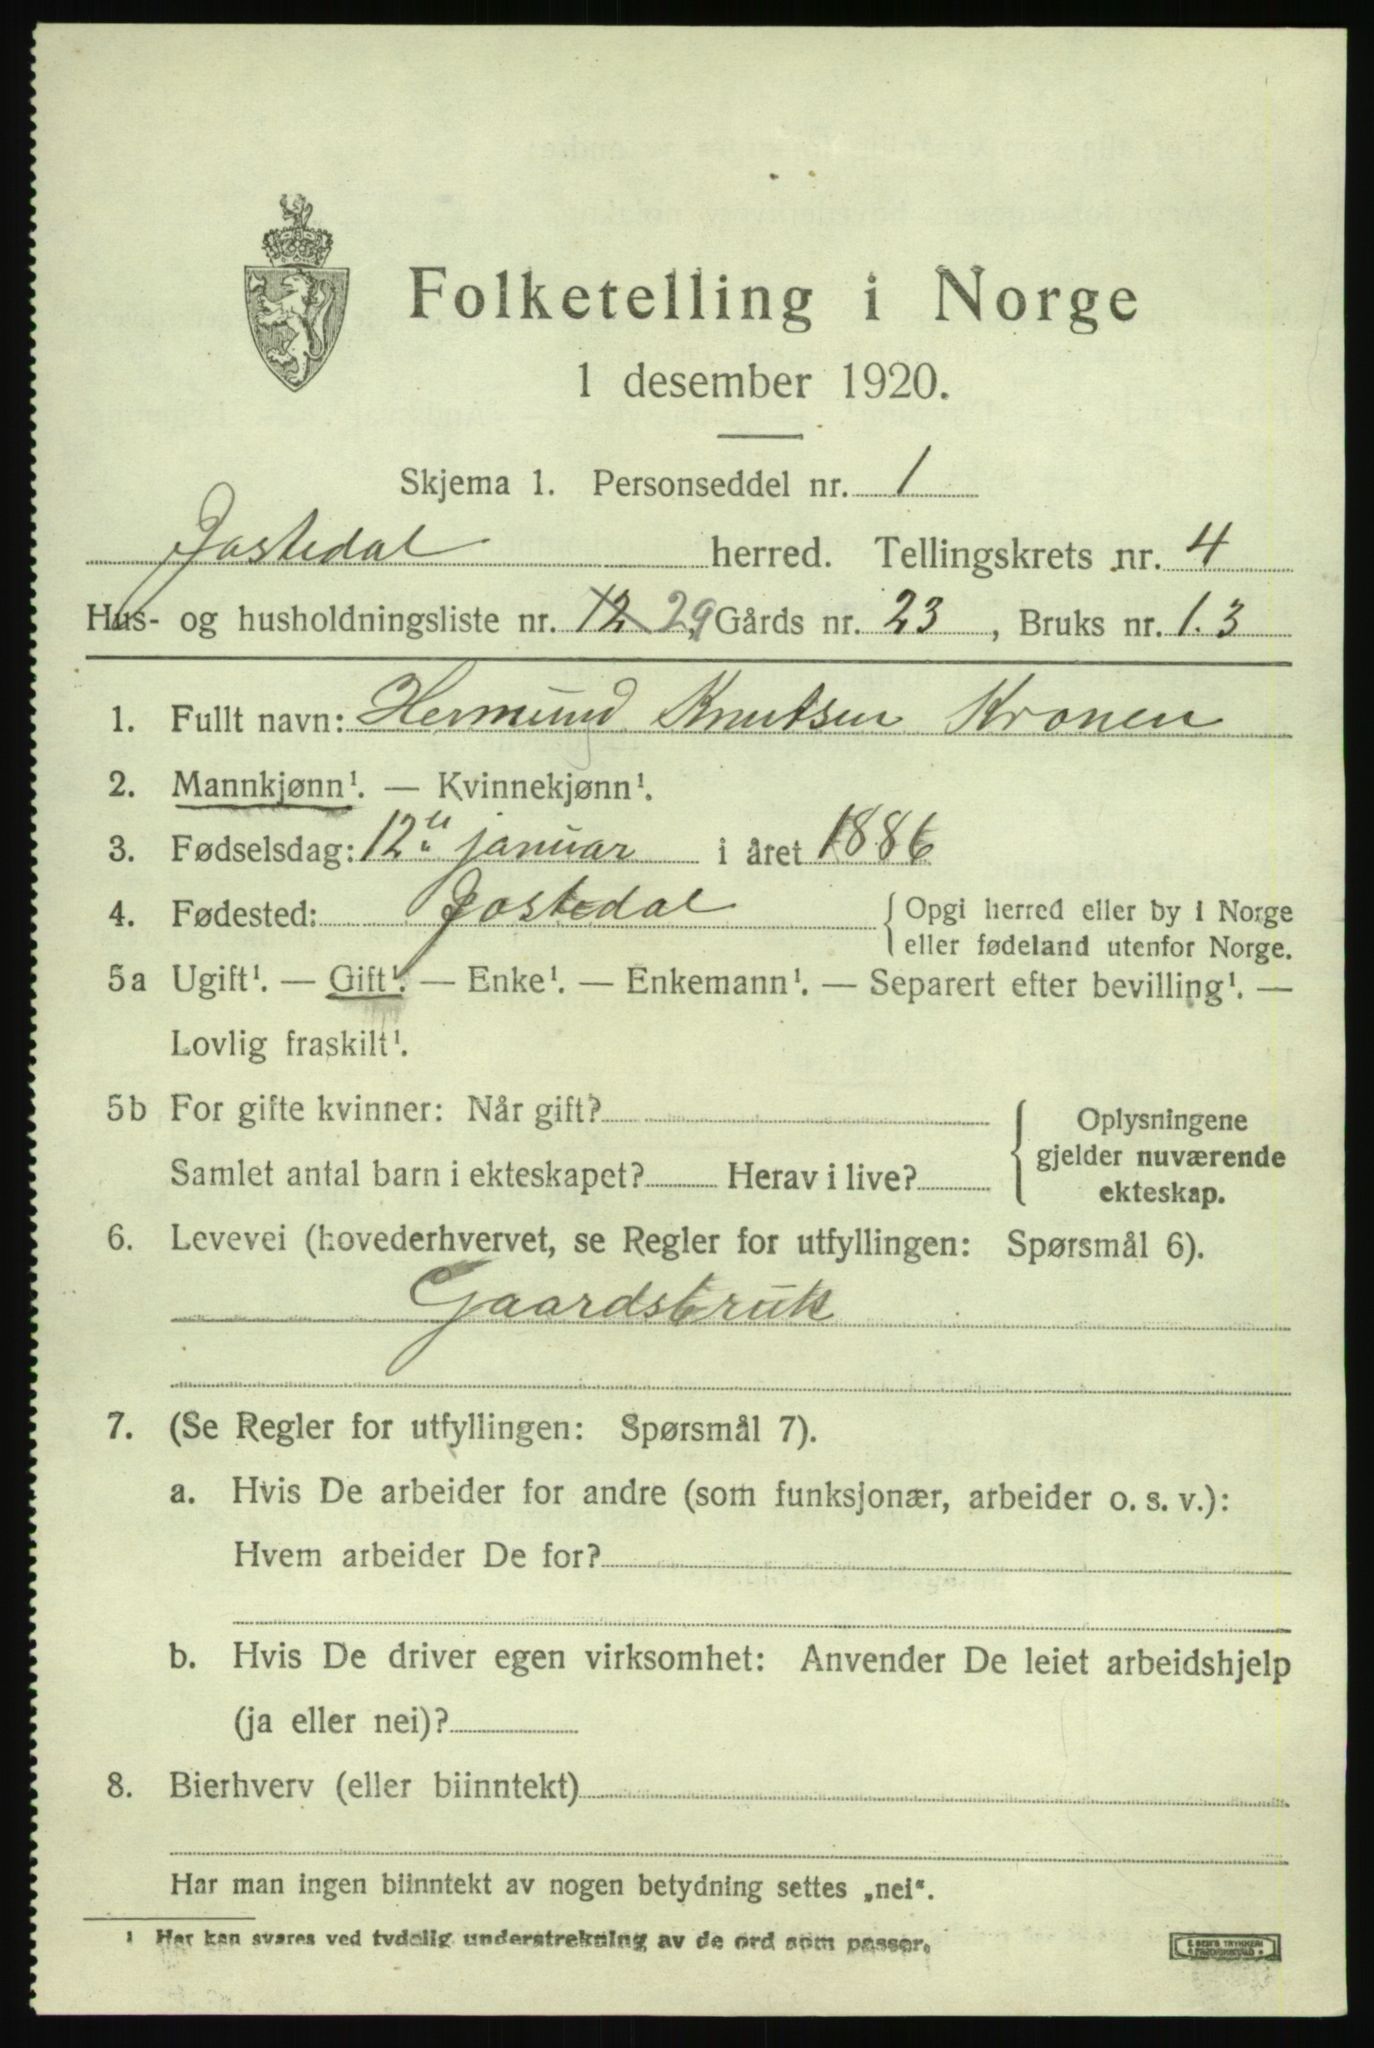 Folketelling i Norge
1 desember 1920.
Skjema 1. Personseddel nr. 1
Jostedal herred. Tellingskrets nr. 4
Hus- og husholdningsliste nr. 12 29 Gårds nr. 23, Bruks nr. 1.3
1. Fullt navn: Hermund Knutsen Kronen
2. Mannkjønn¹. — Kvinnekjønn¹.
3. Fødselsdag: 12te januar i året 1886
4. Fødested: Jostedal { Opgi herred eller by i Norge
eller fødeland utenfor Norge.
5a Ugift¹. — Gift¹. — Enke¹. — Enkemann¹. — Separert efter bevilling¹. —
Lovlig fraskilt¹.
5b For gifte kvinner: Når gift?
Samlet antal barn i ekteskapet? Herav i live?
Oplysningene
gjelder nuværende
ekteskap.
6. Levevei (hovederhvervet, se Regler for utfyllingen: Spørsmål 6).
Gaardsbruk
7. (Se Regler for utfyllingen: Spørsmål 7).
a. Hvis De arbeider for andre (som funksjonær, arbeider o. s. v.):
Hvem arbeider De for?
b. Hvis De driver egen virksomhet: Anvender De leiet arbeidshjelp
(ja eller nei)?
8. Bierhverv (eller biinntekt)
Har man ingen biinntekt av nogen betydning settes „nei“.
¹ Her kan svares ved tydelig understrekning av de ord som passer.